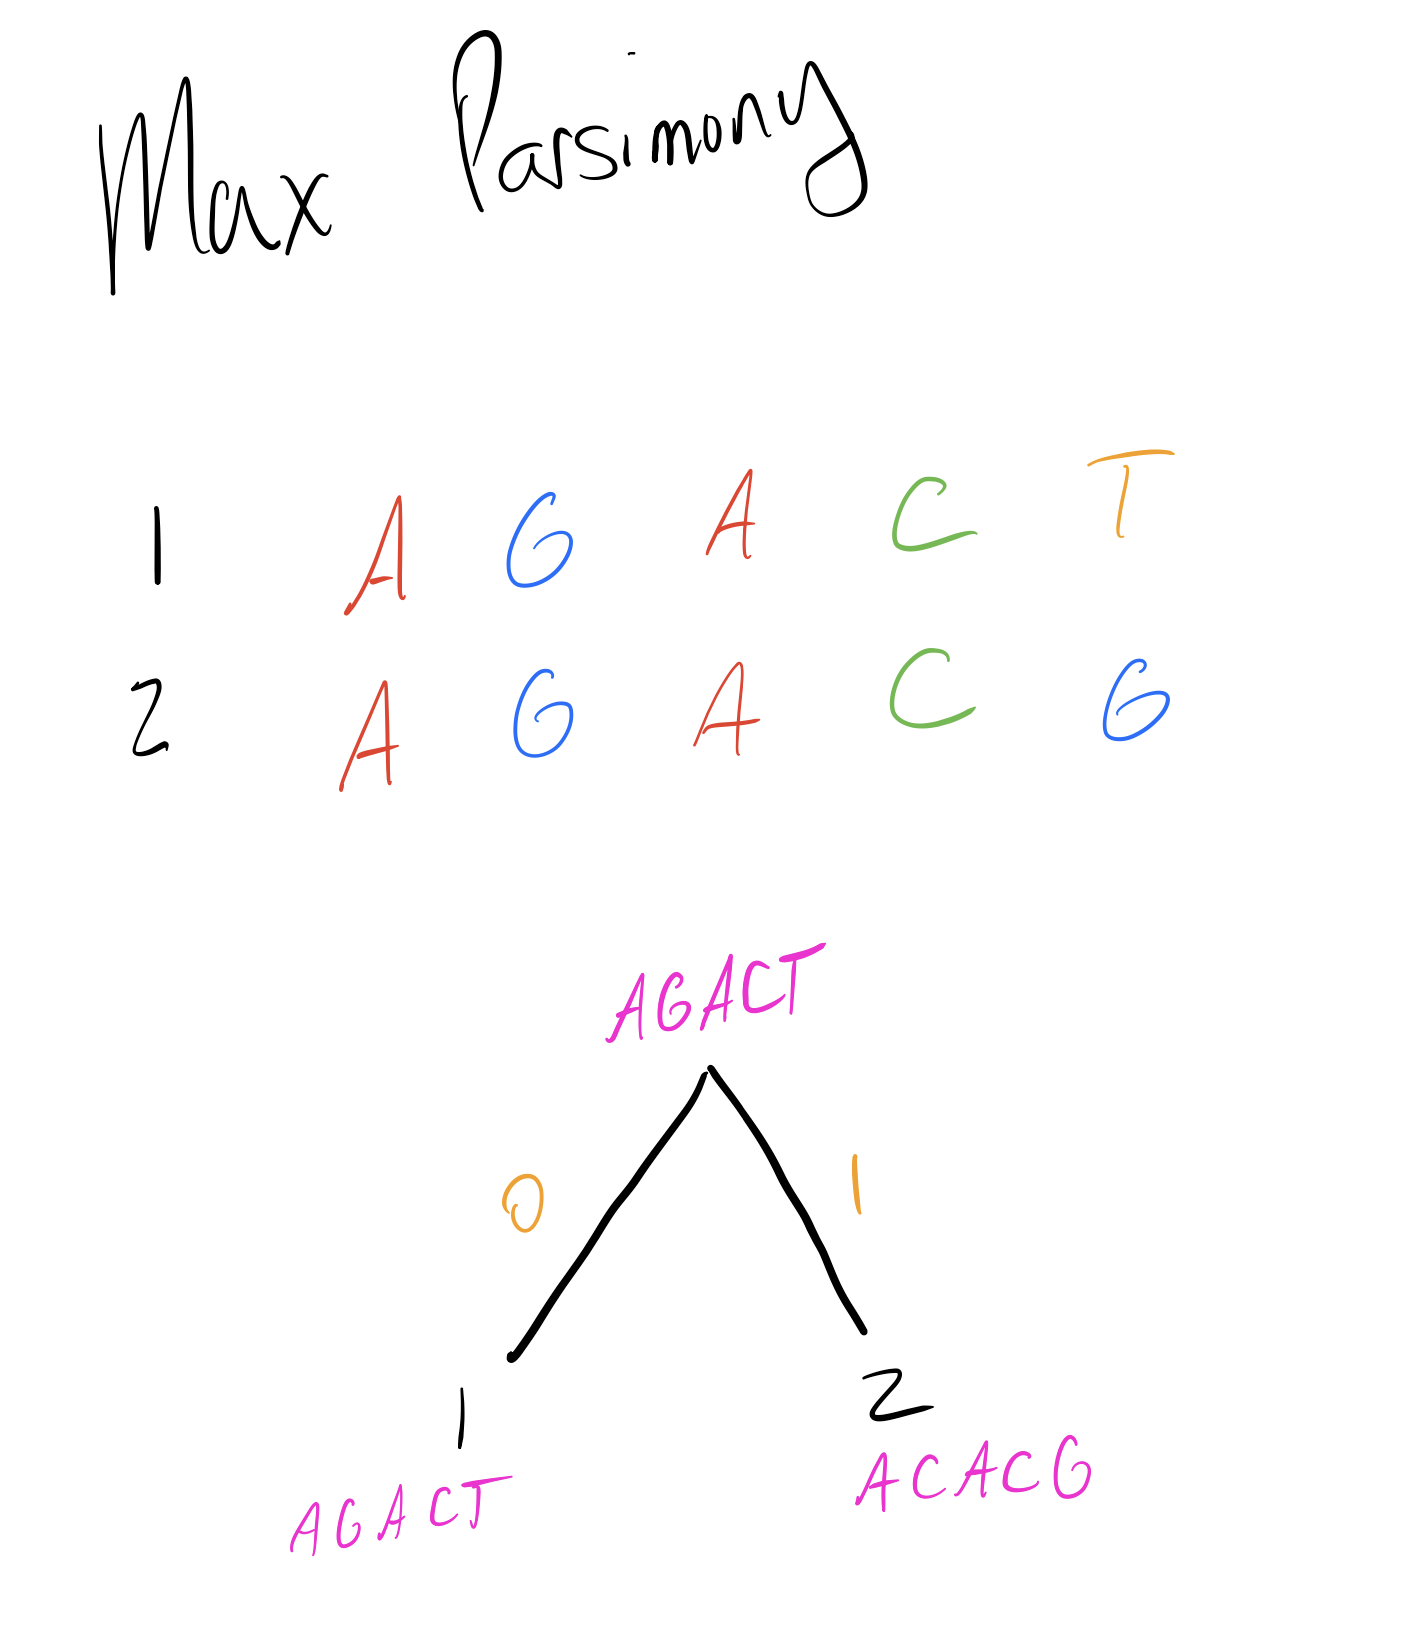 Max Parsimony
1 A G A C T
2 A G A C G
AGACT
0 1
1 2
AGACT ACACG